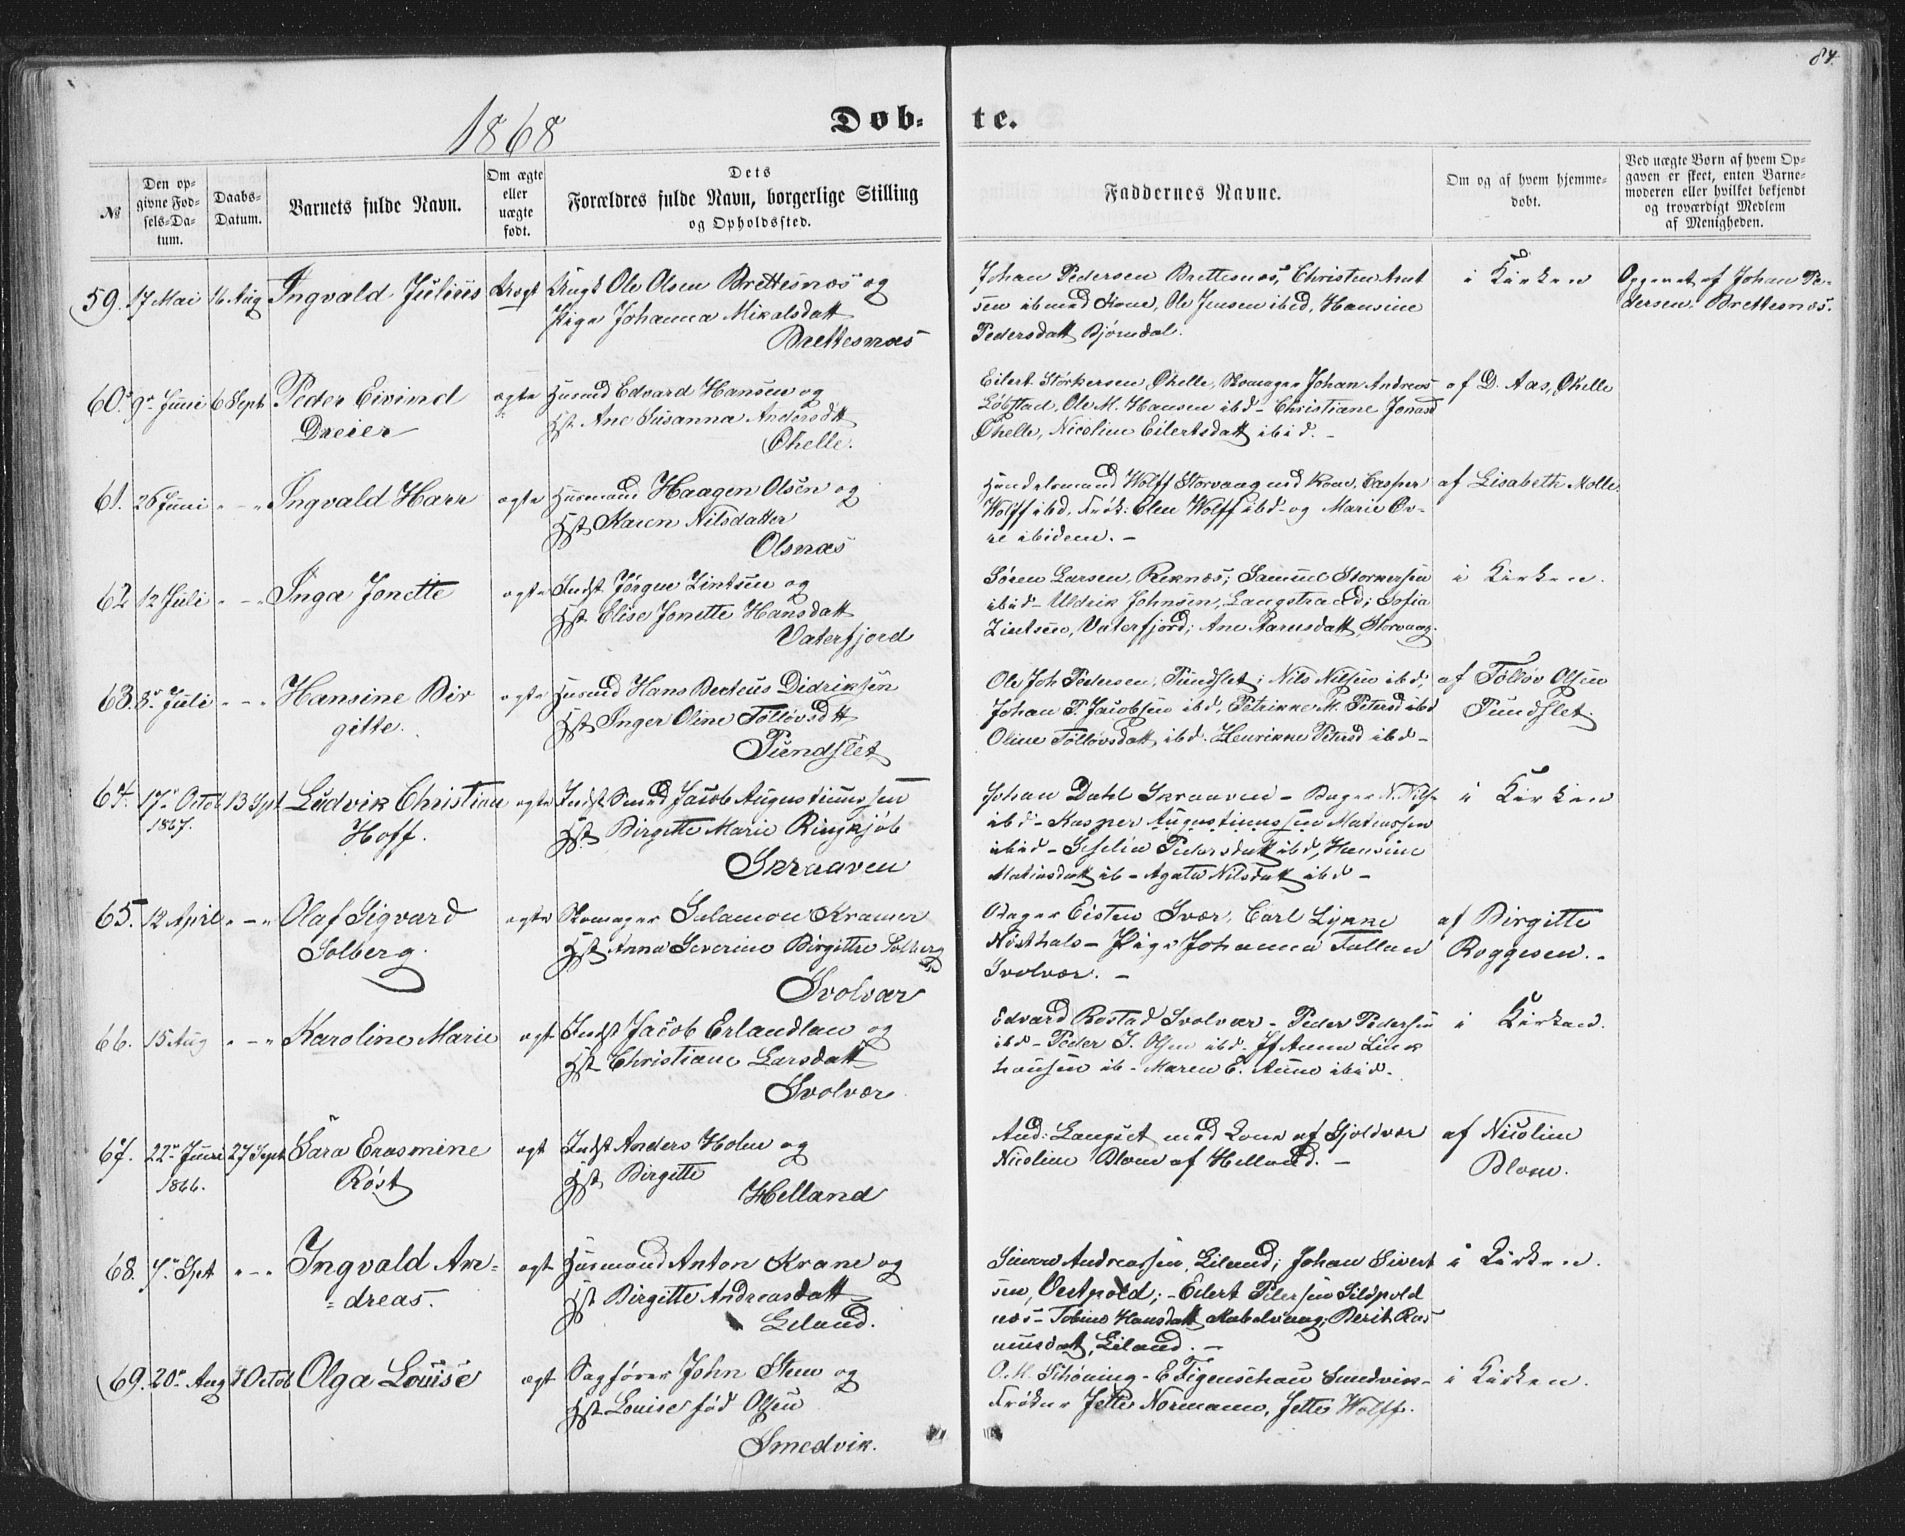 84.
1868
Døb-
te.
№
Den op-
givne Fød-
sels-Da-
tum.
Daabs-
Datum.
Barnets fulde Navn.
Om ægte
eller
uægte
født.
Dets
Forældres fulde Navn, borgerlige Stilling
og Opholdssted.
Faddernes Navne.
Om og af hvem hjemme-
døbt.
Ved uægte Børn af hvem Op-
gaven er skeet, enten Barne-
moderen eller hvilket bekjendt
og troværdigt Medlem
af Menigheden.
59. 17 Mai 16 Aug Ingvald Julius Uægt Ungk Ole Olsen Brettesnæs og
Pige Johanna Mikalsdatt
Brettesnæs
Johan Pedersen Brettesnæs, Christen Amt
sen ib med Kone, Ole Jensen ibid, Hansine
Pedersdatt Bjørndal.
i Kirken
Opgevet af Johan Pe-
dersen, Brettesnæs.
60. 9 Juni 6 Sept Peder Eivind
Dreier
ægte Husmd Edvard Hansen og
Hst Ane Susanna Andersdtt
Øhelle.
Eilert Størkersen, Øhelle, Skomager Johan Andreas
Løbstad, Ole M. Hansen ibd - Christiane Jonasd
Øhelle, Nicoline Eilertsdatt ibid. -
af D. Aas, Øhelle
61. 26 Juni " - " Ingvald Harr ægte Husmand Haagen Olsen og
Hst Karen Nilsdatter
Olsnæs
Handelsmand Wolff Storvaag med Kone, Casper
Wolff ibd, Frøk: Elen Wolff ibd og Marie Ov-
re ibidem. -
af Lisabeth Molle
62 12 Juli " - " Inga Jonette ægte Indst Jørgen Zintsen og
Hst Elise Jonette Hansdatt
Vaterfjord
Søren Larsen, Reknæs; Samuel Storkersen
ibid - Uldrik Johnsen, Langstrand; Sofia
Zintsen, Vaterfjord; Ane Aarnsdatt, Storvaag.
i Kirken.
63. 8 Juli " - " Hansine Bir
gitte.
ægte Husmd Hans Berteus Didriksen
Hst Inger Oline Tolløvsdtt
Pundslet
Ole Joh Pedersen, Pundslet; Nils Nilsen ibd;
Johan P. Jacobsen ibd, Petrikke M. Petersd ibd
Oline Tolløvsdatt, ibd. Henrikke Petersd ibd -
af Tolløv Olsen
Pundslet.
64. 17 Octob 13 Spt Ludvik Christian
1867.
Hoff.
ægte Indst Smed Jacob Augustinussen
Hst Birgitte Marie Ringkjøb
Skraaven
Johan Dahl Skraaven - Bager N. Nils
ibd - Kasper Augustinussen Matiassen
ibid - Gjselia Pedersdatt ibd, Hansine
Matiasdatt ib - Agata Nilsdatt ibd -
i Kirken
65. 12 April " - " Olaf Sigvard
Solberg.
ægte Skomager Salamon Kramer
Hst Anna Severine Birgitte Solberg
Svolvær
Bager Eisten Svær, Carl Lynne
Nøsthals - Pige Johanna Fallan
Svolvær. -
af Birgitte
Roggesen. -
66. 15 Aug " - " Karoline Marie ægt Indst Jacob Erlandlan og
Hst Christiane Larsdatt
Svolvær
Edvard Rostad Svolvær - Peder Pedersen
ibd - Peder J. Olsen ibd. Jf Anna Link
hausen ib - Maren E. Aune ibid.
i Kirken.
67. 22 Juni 27 Sept Sara Erasmine
1866.
Røst
ægt Indst Anders Holm og
Hst Birgitte
Helland
And: Langset med Kone af Gjoldvær
Nicoline Blom af Helland. -
af Nicoline
Blom.
68. 7 Spt " - " Ingvald An-
dreas.
ægt Husmand Anton Krane og
Hst Birgitte Andreasdatt
Leland.
Simon Andreassen, Liland; Johan Sivert
sen, Oestpold; - Edert Pedersen Sildpold
næs - Tobine Hansdatt Mabelvaag; Berit Ras
musdat, Liland. -
i Kirken.
69. 20 Aug 4 Octob Olga Louise ægt Sagfører John Steen og
Hst Louise fød Olsen
Smedvik.
O. M. Schøning - E Figenschau Sundvik -
Frøkner Jette Normann, Jette Wolff.
i Kirken.